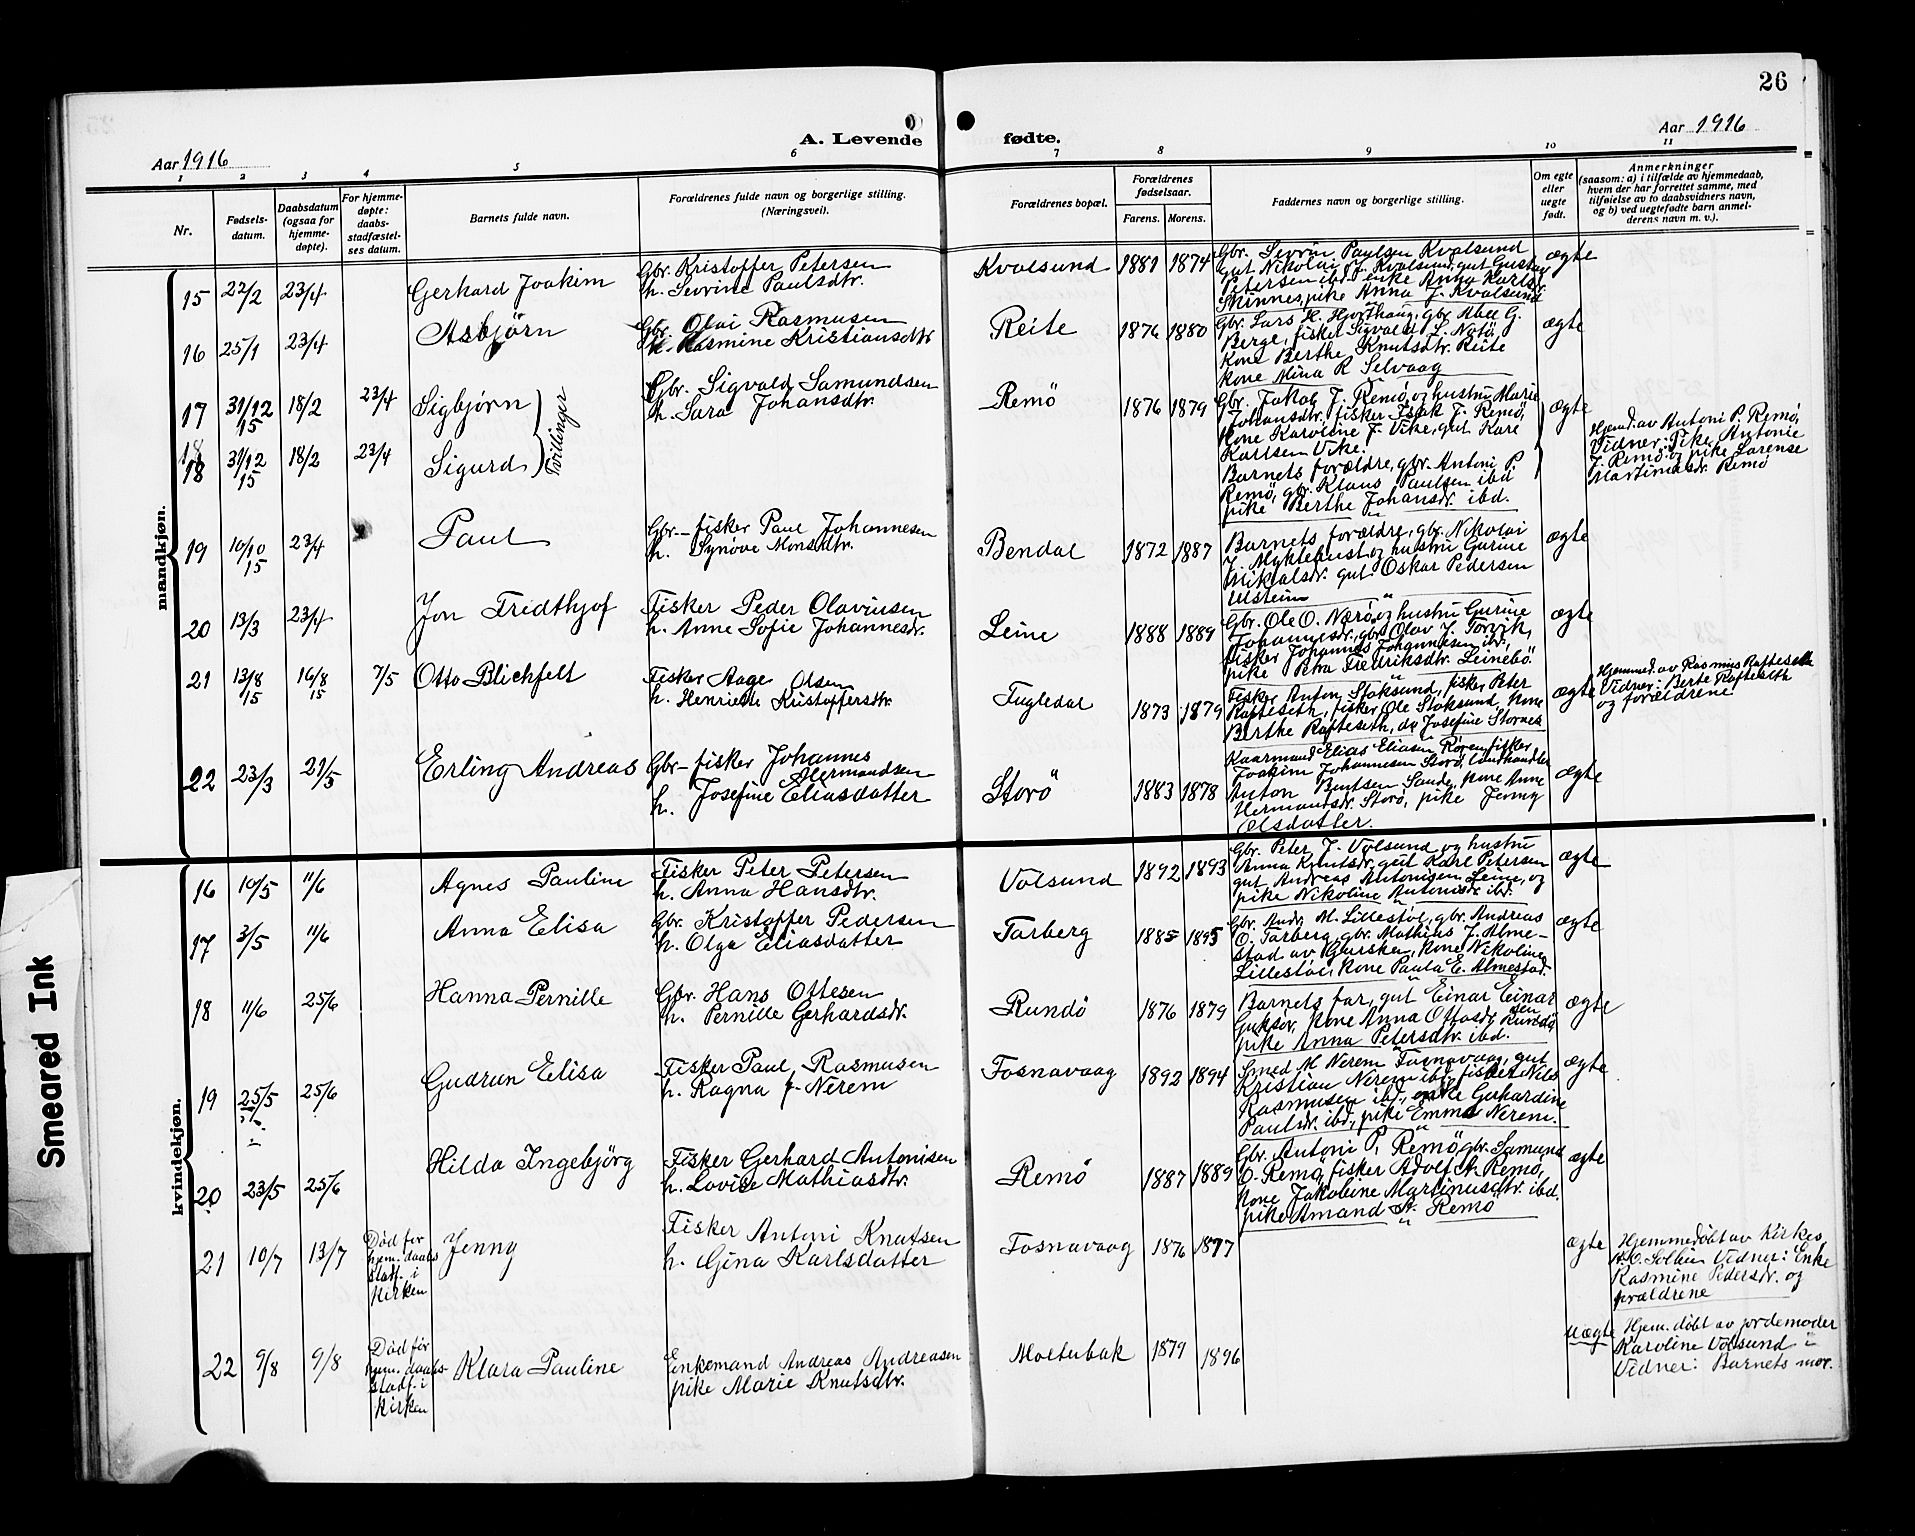 26
A. Levende fødte.
Aar 1916
Aar 1916
1 2 3 4 5 6 7 8 9 10 11
Nr.
Fødsels-datum.
Daabsdatum (ogsaa for hjemme-døpte).
For hjemme-døpte: daabs-stadfæstel-ses datum.
Barnets fulde navn.
Forældrenes fulde navn og borgerlige stilling. (Næringsvei).
Forældrenes bopæl.
Forældrenes fødselsaar.
Farens. Morens.
Faddernes navn og borgerlige stilling.
Om egte eller uegte født.
Anmerkninger
(saasom: a) i tilfælde av hjemmedaab,
hvem der har forrettet samme, med
tilføielse av to daabsvidners navn,
og b) ved uegtefødte barn anmel-
derens navn m. v.).
mandkjøn.
15 22/2 23/4 Gerhard Joakim
Gbr. Kristoffer Petersen
h. Sevrine Paulsdtr.
Kvalsund 1881 1874
Gbr. Sevrin Paulsen Kvalsund
gut Nikolai J. Kvalsund, gut Gustav
Petersen ibd. enke Anna Karlsdr.
Skinnes, pike Anna J. Kvalsund
ægte
16 25/1 23/4 Asbjørn
Gbr. Olai Rasmusen
h. Rasmine Kristiansdtr
Reite 1876 1880
Gbr. Lars H. Hjorthaug, gbr Abel G.
Berge, fisker Sigvald L. Notø,
Kone Berthe Knutsdtr. Reite
Kone Mina R Selvaag
ægte
17 31/12 15 18/2 23/4 Sigbjørn
Tvillinger
Gbr. Sigvald Samundsen
h. Sara Johansdtr.
Remö 1876 1879
Gbr. Jakob J. Remø og hustru Marie
Johansdtr, fisker Isak J. Remø,
Kone Karoline J. Vike, gut Kare
Karlsen Vike.
ægte
18 31/12 15 18/2 23/4 Sigurd
Barnets forældre, gbr. Antoni P.
Remø, gbr. Klaus Paulsen ibd
pike Berthe Johansdr. ibd.
Hjemd. av Antoni P. Remø,
Vidner: Pike Antonie
J. Remø og pike Larense
Martinusdr. Remø
19 10/10 15 23/4 Paul
Gbr.- fisker Paul Johannesen
h. Synøve Monsdtr.
Bendal 1872 1887
Barnets forældre, gbr. Nikolai
J. Myklebust og hustru Gurine
Nikolsdr. gut Oskar Pedersen
Ulstein
ægte
20 13/3 23/4 Jon Fridthjof
Fisker Peder Olavinsen
h. Anne Sofie Johannesdr.
Leine 1888 1889
Gbr. Ole O. Nærø og hustru Gurine
Johannesdr, gbr. Olav J. Torvik,
fisker Johannes Johannesen ibd,
pike Petra Fredriksdtr. Leinebö.
ægte
21 13/8 15 16/8 15 7/5 Otto Blichfelt
Fisker Aage Olsen
h. Henriette Kristoffersdtr.
Fugledal 1873 1879
Fisker Anton Stoksund, fisker Peter
Rafteseth, fisker Ole Stoksund, Kone
Berthe Rafteseth, do Josefine Stornes
ægte
Hjemmed. av Rasmus Rafteseth
Vidner: Berte Rafteseth
og forældrene
22 23/3 21/5 Erling Andreas
Gbr - fisker Johannes
Hermandsen
h. Josefine Eliasdatter
Storö 1883 1878
Kaarmand Elias Eliasen Røren, fisker
Joakim Johannesen Storø, landhandler
Anton Bentsen Sande, Kone Anne
Hermandsdr. Storø, pike Jenny
Olsdatter.
ægte
kvindekjøn.
16 10/5 11/6 Agnes Pauline
Fisker Peter Petersen
h. Anna Hansdtr.
Volsund 1892 1893
Gbr. Peter J. Volsund og hustru
Anna Knutsdr. gut Karl Petersen
gut Andreas Antonisen Leine, og
pike Nikoline Antonisdr. ibd.
ægte
17 3/5 11/6 Anna Elisa
Gbr. Kristoffer Pedersen
h. Olga Eliasdatter
Tarberg 1885 1895
Gbr. Andr. M. Lillestøl, gbr. Andreas
O. Tarberg, gbr. Mathias J. Alme-
stad av Gursken, Kone Nikoline
Lillestøl, Kone Paula E. Almestad.
ægte
18 11/6 25/6 Hanna Pernille
Gbr. Hans Ottesen
h. Pernille Gerhardsdr.
Rundö 1876 1879
Barnets far, gut Einar Einar
sen
Kone Anna Ottosdr. Rundø
pike Anna Petersdtr. ibd.
ægte
19 25/5 25/6 Gudrun Elisa
Fisker Paul Rasmusen
h. Ragna f. Nerem
Fosnavaag 1892 1894
Smed M Nerem Fosnavaag, gut
Kristian Nerem ibd, fisker Nils
Rasmusen ibd., enke Gerhardine
Paulsdr. ibd, pike Emma Nerem.
ægte
20 23/5 25/6 Hilda Ingebjörg
Fisker Gerhard Antonisen
h. Lovise Mathiasdtr.
Remö 1887 1889
Gbr. Antoni P. Remö, gbr. Samund
O. Remø, fisker Adolf A. Remø,
Kone Jakobine Martinusdtr. ibd.
pike Amanda A. Remö
ægte
21 10/7 13/7
Død før
hjem. daabs
stadf. i
Kirken
Jenny
Fisker Antoni Knutsen
h. Gina Karlsdatter
Fosnavaag 1876 1877
ægte
Hjemmedöbt av Kirkes.
Vidner: Enke
Rasmine Pedersdr. og
forældrene
22 9/8 9/8
Død før
hjem. daabs-
stadf. i
Kirken
Klara Pauline
Enkemand Andreas Andreasen
pike Marie Knutsdtr.
Moltubak 1879 1896
uægte
Hjem. døbt av jordemoder
Karoline Volsund
Vidner: Barnets mor.
Smeared Ink